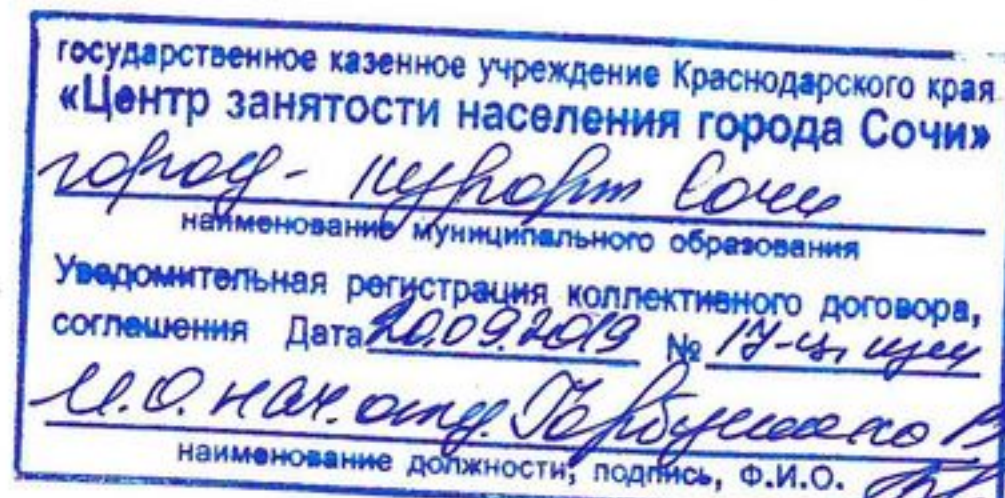 государственное казенное учреждение Краснодарского края
«Центр занятости населения города Сочи»
город-курорт Сочи
наименование муниципального образования
Уведомительная регистрация коллективного договора,
соглашения Дата 20.09.2019 №
И.О. нач. отд.
наименование должности, подпись, Ф.И.О.